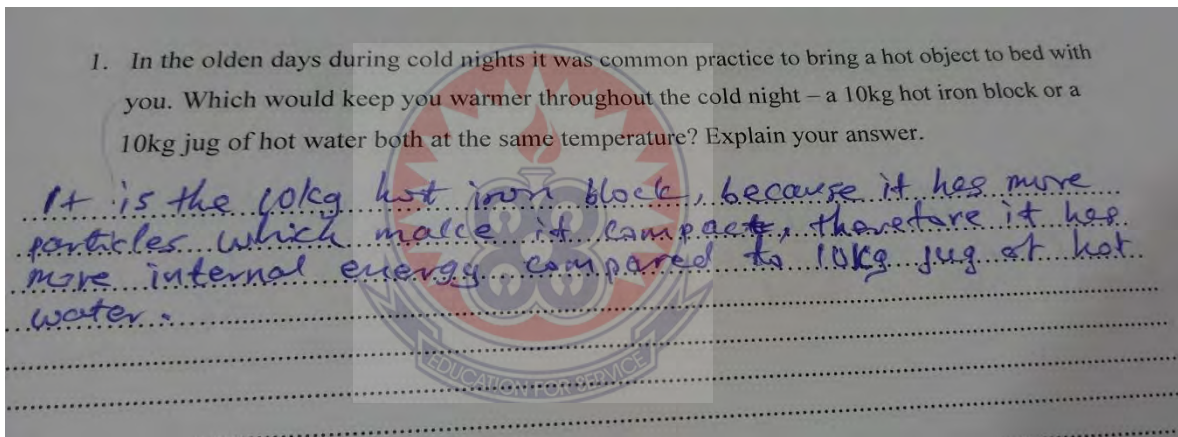 1. In the olden days during cold nights it was common practice to bring a hot object to bed with
you. Which would keep you warmer throughout the cold night – a 10kg hot iron block or a
10kg jug of hot water both at the same temperature? Explain your answer.
It is the 10kg hot iron block, because it has more
particles which make it compact, therefore it has
more internal energy compared to 10kg jug of hot
water.
EDUCATION FOR SERVICE